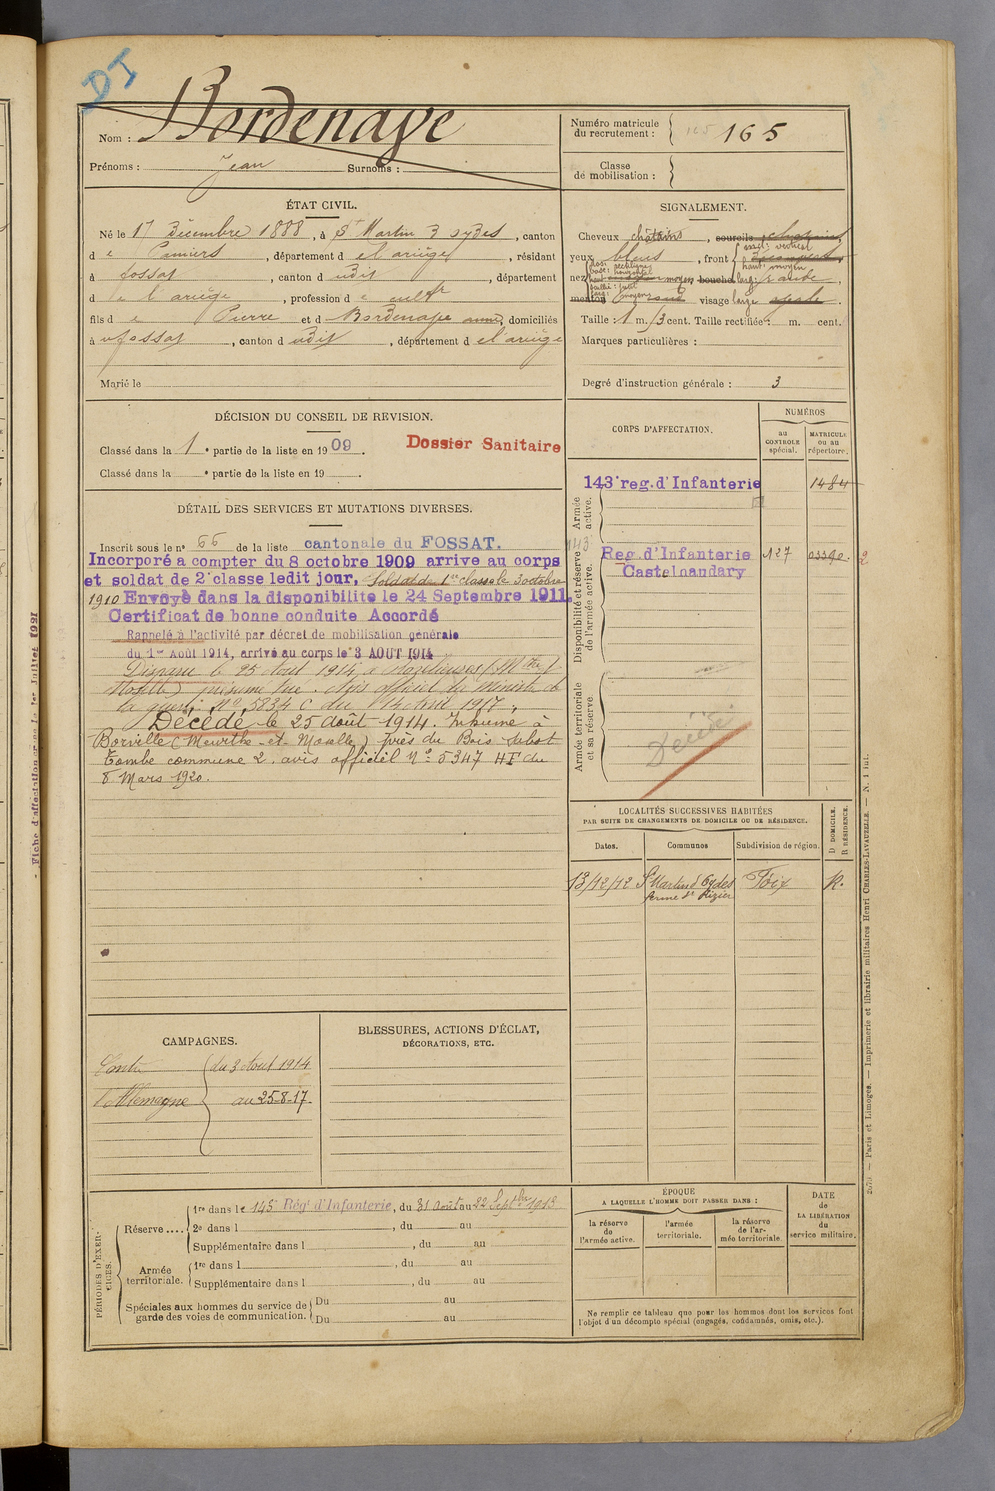 DI
Nom : Bordenave
Prénoms : Jean Surnoms :
Numéro matricule du recrutement : 165 165
Classe de mobilisation :
ÉTAT CIVIL.
Né le 17 décembre 1888, à St Martin d'oydes, canton
de Pamiers, département de l'ariège, résidant
à fossat, canton dudit, département
de l'ariège, profession de cultr
fils de Pierre et de Bordenave anne, domiciliés
au fossat, canton dudit, département de l'ariège
Marié le
SIGNALEMENT.
Cheveux châtains, sourcils châtains
yeux bleus, front
incl: vertical
haut: moyen
nez
dos: rectiligne
base: horizontal
haut:
saillie: petit
larg: moyen
moyen bouche large
menton visage large
Taille : 1 m. 73 cent. Taille rectifiée : m. cent.
Marques particulières :
Degré d'instruction générale : 3
DÉCISION DU CONSEIL DE REVISION.
Classé dans la 1e partie de la liste en 1909.
Classé dans la e partie de la liste en 19
Dossier Sanitaire
CORPS D'AFFECTATION.
NUMÉROS
au CONTROLE spécial.
MATRICULE ou au répertoire.
Armée active.
143e reg. d'Infanterie 1484
Disponibilité et réserve de l'armée active.
143 Reg. d'Infanterie 127 2
Castelnaudary
Armée territoriale et sa réserve.
Décédé
DÉTAIL DES SERVICES ET MUTATIONS DIVERSES.
Inscrit sous le no 66 de la liste cantonale du FOSSAT.
Incorporé a compter du 8 octobre 1909 arrive au corps
et soldat de 2e classe ledit jour, Soldat de 1re classe le 3 octobre
1910 Envoyé dans la disponibilite le 24 Septembre 1911.
Certificat de bonne conduite Accordé
Rappelé à l'activité par décret de mobilisation générale
du 1er Août 1914, arrivé au corps le 3 AOUT 1914
Disparu le 25 Aout 1914 à Rozelieures (Mthe et
Moselle) présumé tué. Avis officiel du Ministre de
la guerre No 5834 C du 14 Avril 1917,
Décédé le 25 août 1914. Inhumé à
Borville (Meurthe-et-Moselle) près du Bois Jabot
Tombe commune 2. avis officiel no 5347 HF du
8 Mars 1920.
LOCALITÉS SUCCESSIVES HABITÉES
PAR SUITE DE CHANGEMENTS DE DOMICILE OU DE RÉSIDENCE.
Dates. Communes Subdivision de région. D. DOMICILE. R. RÉSIDENCE.
13/12/12 St Martin d'Oydes Foix R.
ferme de Rizier
CAMPAGNES.
Contre du 3 Aout 1914
l'Allemagne au 25-8-17.
BLESSURES, ACTIONS D'ÉCLAT,
DÉCORATIONS, ETC.
PÉRIODES D'EXERCICES.
Réserve....
1re dans le 143e Régt d'Infanterie, du 31 août au 22 Septbre 1913
2e dans l , du au
Supplémentaire dans l , du au
Armée territoriale.
1re dans l , du au
Supplémentaire dans l , du au
Spéciales aux hommes du service de garde des voies de communication.
Du au
Du au
ÉPOQUE
A LAQUELLE L'HOMME DOIT PASSER DANS :
la réserve de l'armée active.
l'armée territoriale.
la réserve de l'armée territoriale.
DATE de LA LIBÉRATION du service militaire.
Ne remplir ce tableau que pour les hommes dont les services font
l'objet d'un décompte spécial (engagés, condamnés, omis, etc.).
Paris et Limoges. — Imprimerie et librairie militaires Henri CHARLES-LAVAUZELLE. — N. 1 int.